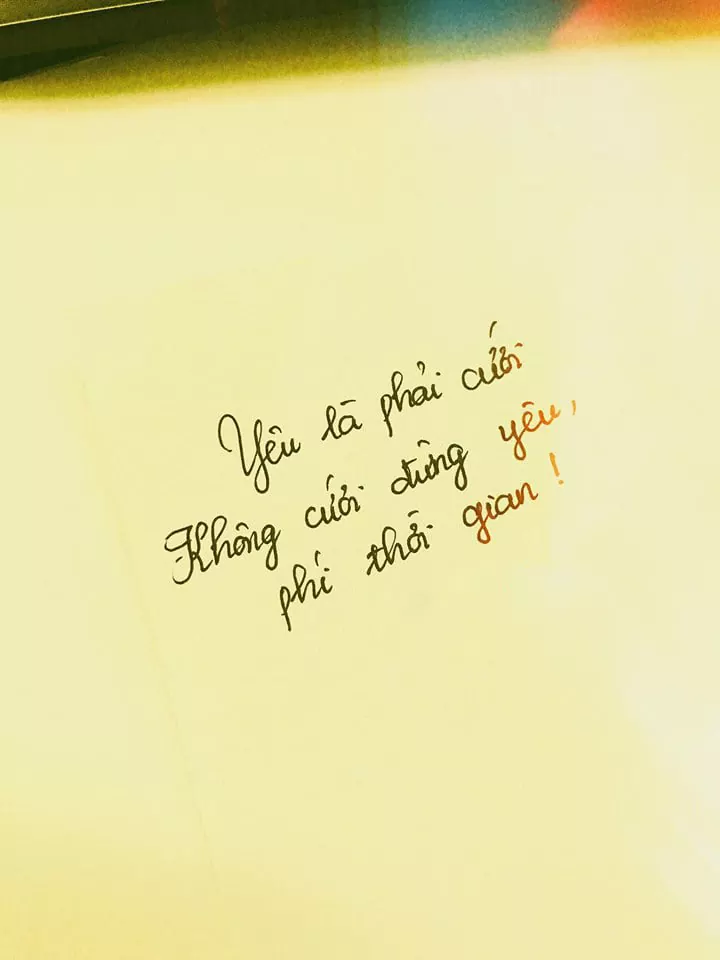 Yêu là phải cưới
Không cưới đừng yêu,
phí thời gian!